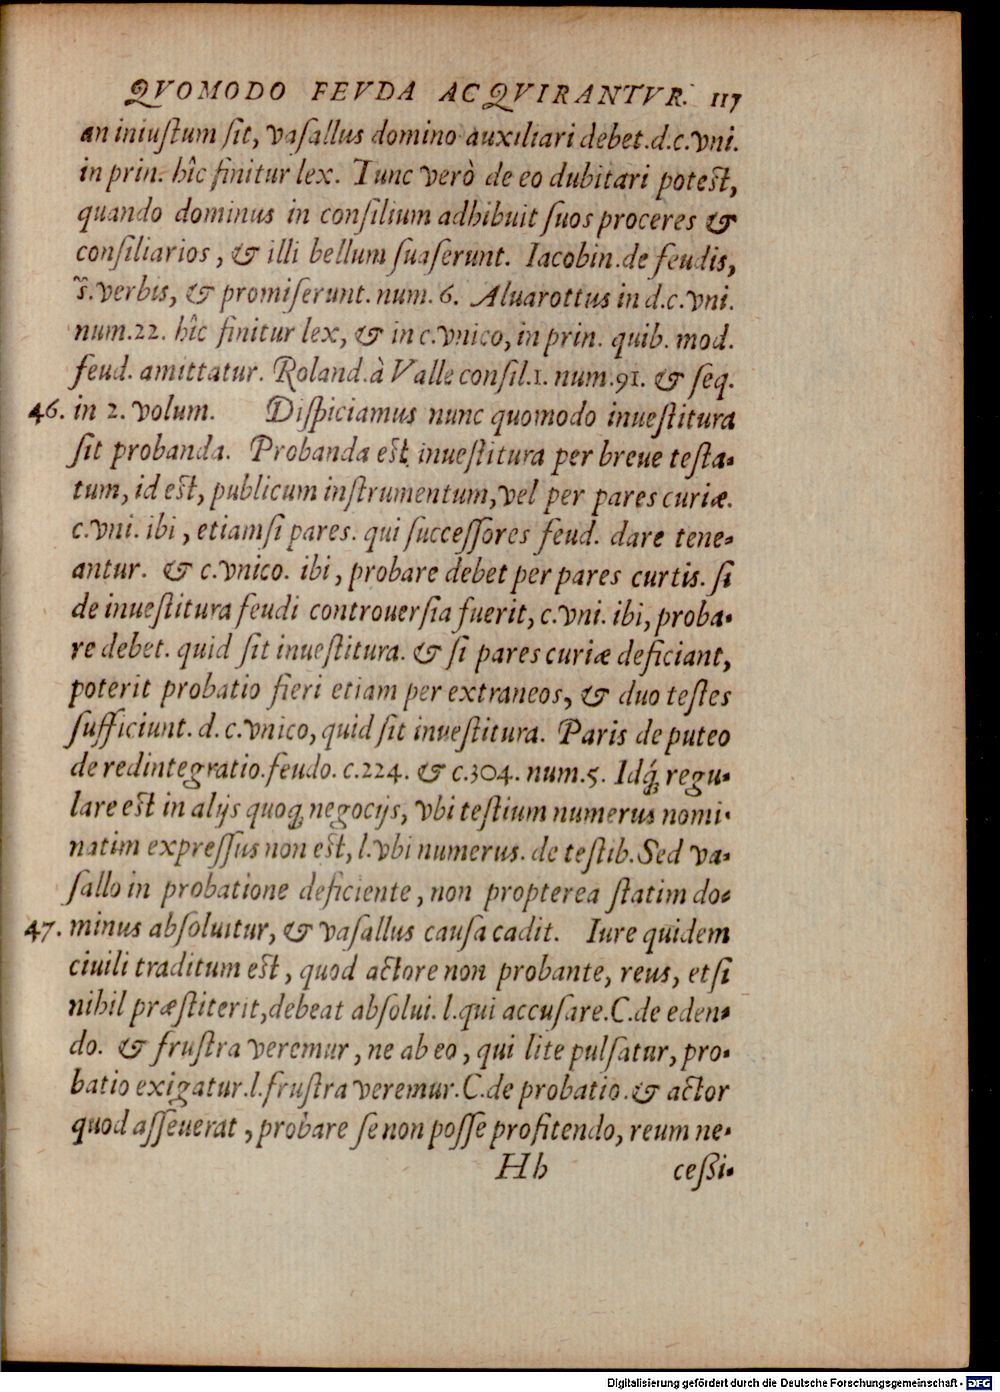 QVOMODO FEVDA ACQVIRANTVR. 117
an iniustum sit, vasallus domino auxiliari debet. d.c.vni.
in prin. hîc finitur lex. Tunc verò de eo dubitari potest,
quando dominus in consilium adhibuit suos proceres &
consiliarios, & illi bellum suaserunt. Iacobin. de feudis,
s̃. verbis, & promiserunt. num. 6. Aluarottus in d.c.vni.
num.22. hîc finitur lex, & in c.vnico, in prin. quib. mod.
feud. amittatur. Roland.à Valle consil.1. num.91. & seq.
46. in 2. volum. Dispiciamus nunc quomodo inuestitura
sit probanda. Probanda est inuestitura per breue testa-
tum, id est, publicum instrumentum, vel per pares curiæ.
c.vni. ibi, etiamsi pares. qui successores feud. dare tene-
antur. & c.vnico. ibi, probare debet per pares curtis. si
de inuestitura feudi controuersia fuerit, c.vni. ibi, proba-
re debet. quid sit inuestitura. & si pares curiæ deficiant,
poterit probatio fieri etiam per extraneos, & duo testes
sufficiunt. d. c.vnico, quid sit inuestitura. Paris de puteo
de redintegratio.feudo. c.224. & c.304. num.5. Idq́; regu-
lare est in alijs quoq; negocijs, vbi testium numerus nomi-
natim expressus non est, l.vbi numerus. de testib. Sed va-
sallo in probatione deficiente, non propterea statim do-
47. minus absoluitur, & vasallus causa cadit. Iure quidem
ciuili traditum est, quod actore non probante, reus, etsi
nihil præstiterit, debeat absolui. l.qui accusare.C.de eden-
do. & frustra veremur, ne ab eo, qui lite pulsatur, pro-
batio exigatur.l.frustra veremur.C.de probatio.& actor
quod asseuerat, probare se non posse profitendo, reum ne-
Hh cessi-
Digitalisierung gefördert durch die Deutsche Forschungsgemeinschaft - DFG